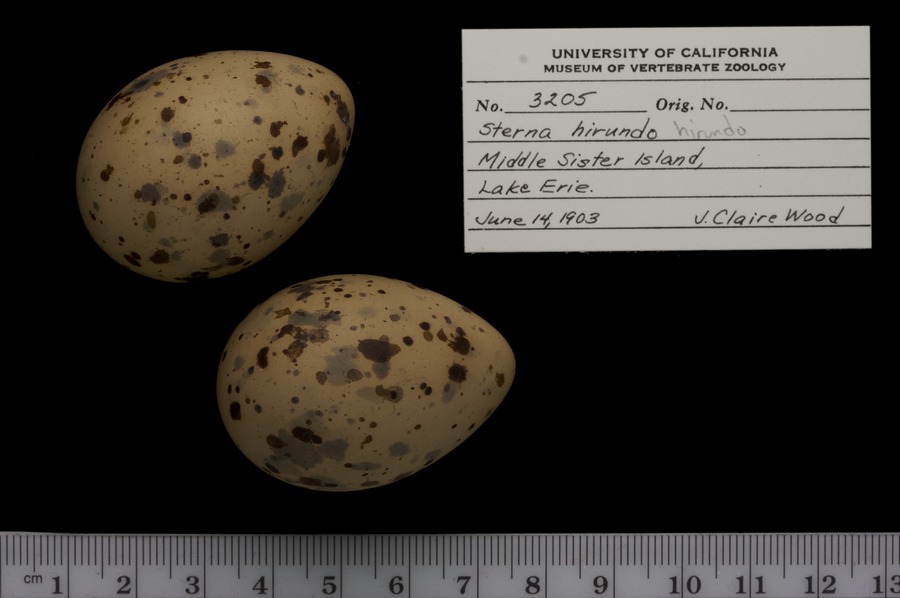 UNIVERSITY OF CALIFORNIA
MUSEUM OF VERTEBRATE ZOOLOGY
No. 3205 Orig. No.
Sterna hirundo hirundo
Middle Sister Island,
Lake Erie.
June 14, 1903 J. Claire Wood
cm 1 2 3 4 5 6 7 8 9 10 11 12 13